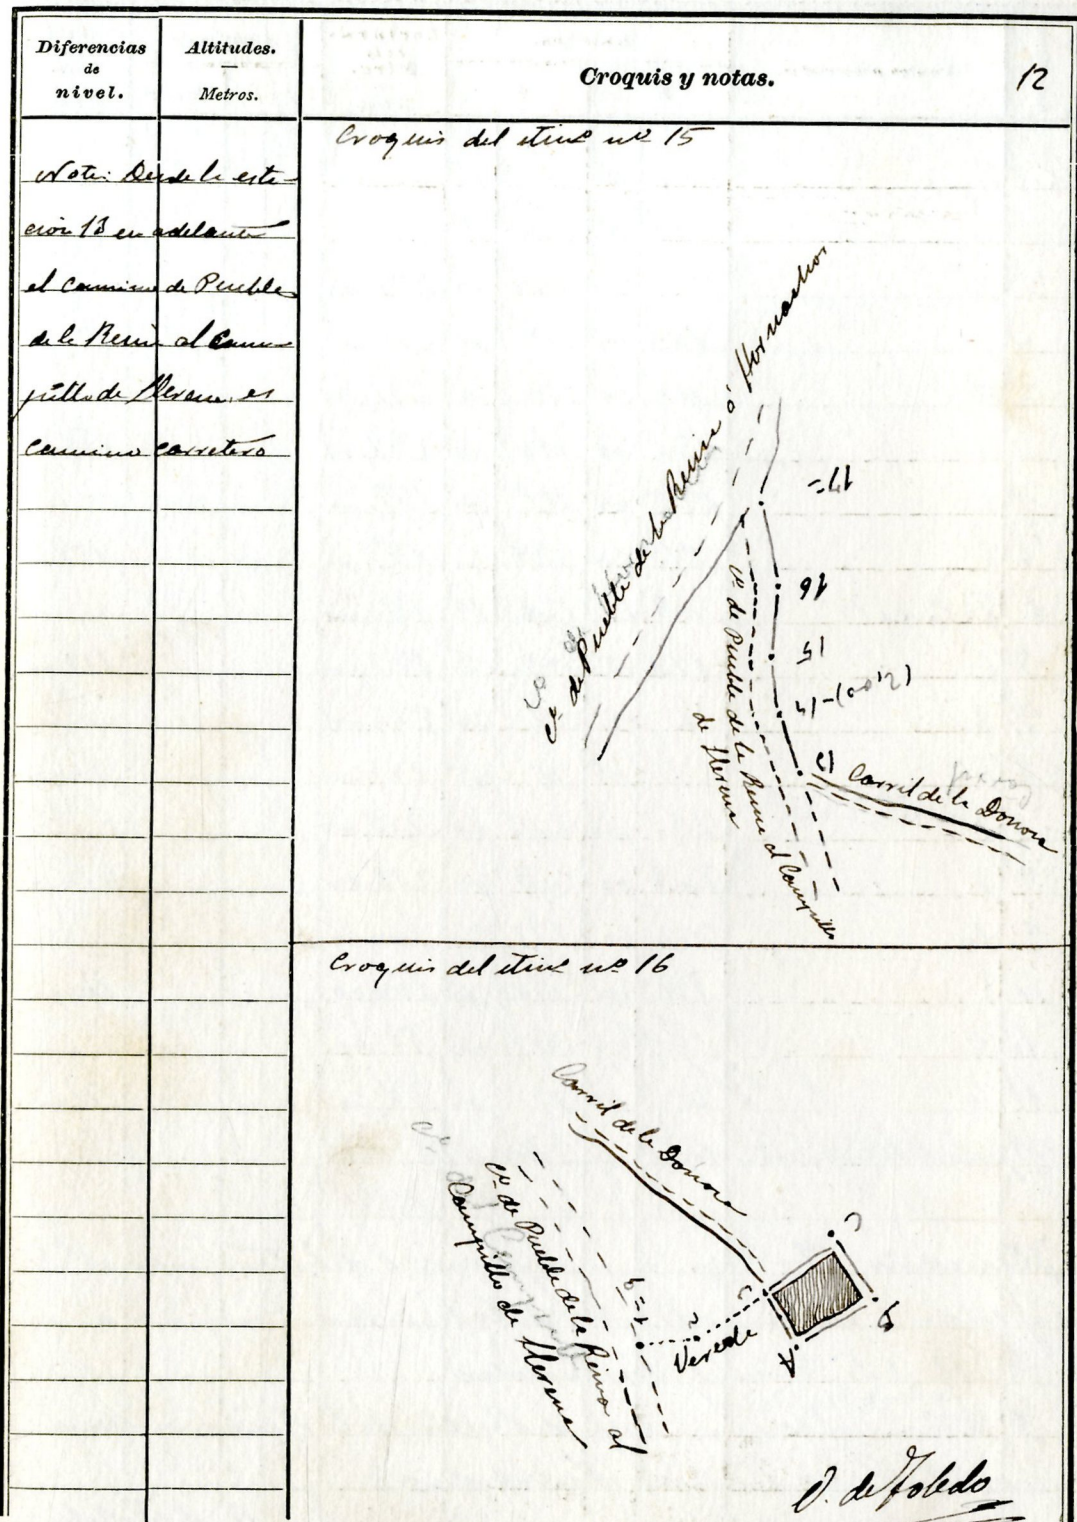 Diferencias
de
nivel.
Altitudes.
Metros.
Croquis y notas.
12
Nota: Desde la esta-
ción 13 en adelante
el camino de Puebla
de la Reina al Cam-
pillo de Llerena, es
camino carretero
Croquis del itinº nº 15
Cº de Puebla de la Reina á Hornachos
17=
16
15
14
13
Cº de Puebla de la Reina al Campillo
de Llerena
Carril de la Donosa
Croquis del itinº nº 16
Carril de la Donosa
Cº de Puebla de la Reina al
Campillo de Llerena
9=1
2
Vereda
D. de Toledo